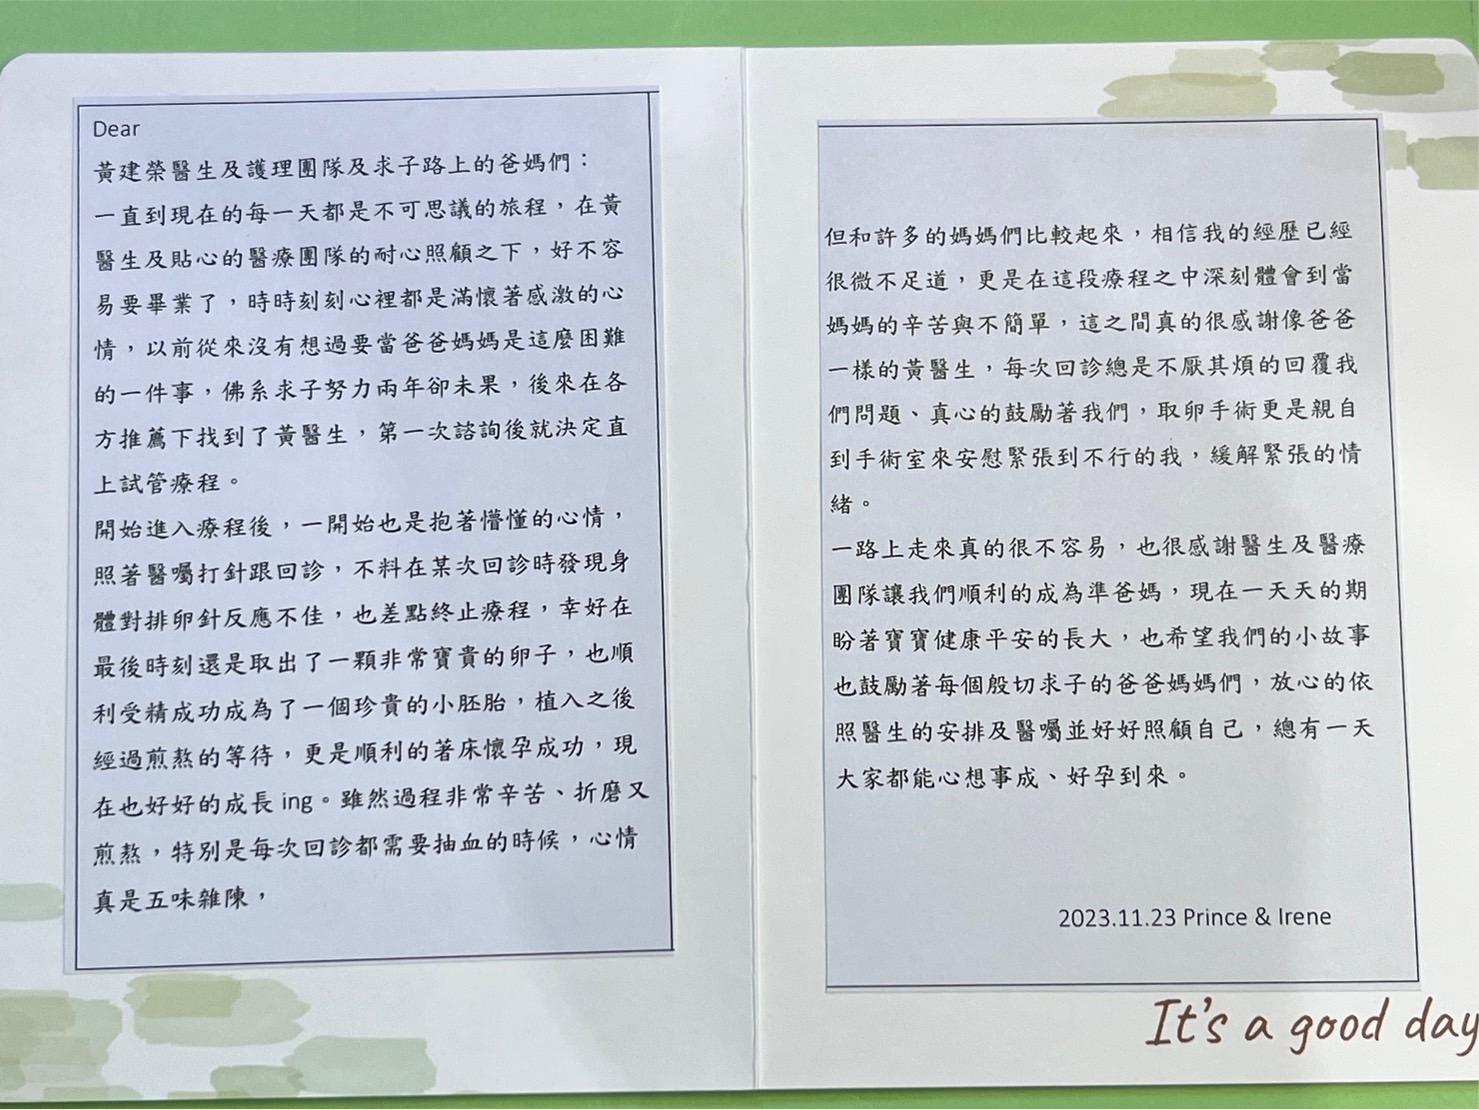 Dear
黃建榮醫生及護理團隊及求子路上的爸媽們：
一直到現在的每一天都是不可思議的旅程，在黃
醫生及貼心的醫療團隊的耐心照顧之下，好不容
易要畢業了，時時刻刻心裡都是滿懷著感激的心
情，以前從來沒有想過要當爸爸媽媽是這麼困難
的一件事，佛系求子努力兩年卻未果，後來在各
方推薦下找到了黃醫生，第一次諮詢後就決定直
上試管療程。
開始進入療程後，一開始也是抱著懵懂的心情，
照著醫囑打針跟回診，不料在某次回診時發現身
體對排卵針反應不佳，也差點終止療程，幸好在
最後時刻還是取出了一顆非常寶貴的卵子，也順
利受精成功成為了一個珍貴的小胚胎，植入之後
經過煎熬的等待，更是順利的著床懷孕成功，現
在也好好的成長 ing。雖然過程非常辛苦、折磨又
煎熬，特別是每次回診都需要抽血的時候，心情
真是五味雜陳，
但和許多的媽媽們比較起來，相信我的經歷已經
很微不足道，更是在這段療程之中深刻體會到當
媽媽的辛苦與不簡單，這之間真的很感謝像爸爸
一樣的黃醫生，每次回診總是不厭其煩的回覆我
們問題、真心的鼓勵著我們，取卵手術更是親自
到手術室來安慰緊張到不行的我，緩解緊張的情
緒。
一路上走來真的很不容易，也很感謝醫生及醫療
團隊讓我們順利的成為準爸媽，現在一天天的期
盼著寶寶健康平安的長大，也希望我們的小故事
也鼓勵著每個殷切求子的爸爸媽媽們，放心的依
照醫生的安排及醫囑並好好照顧自己，總有一天
大家都能心想事成、好孕到來。
2023.11.23 Prince & Irene
It's a good day